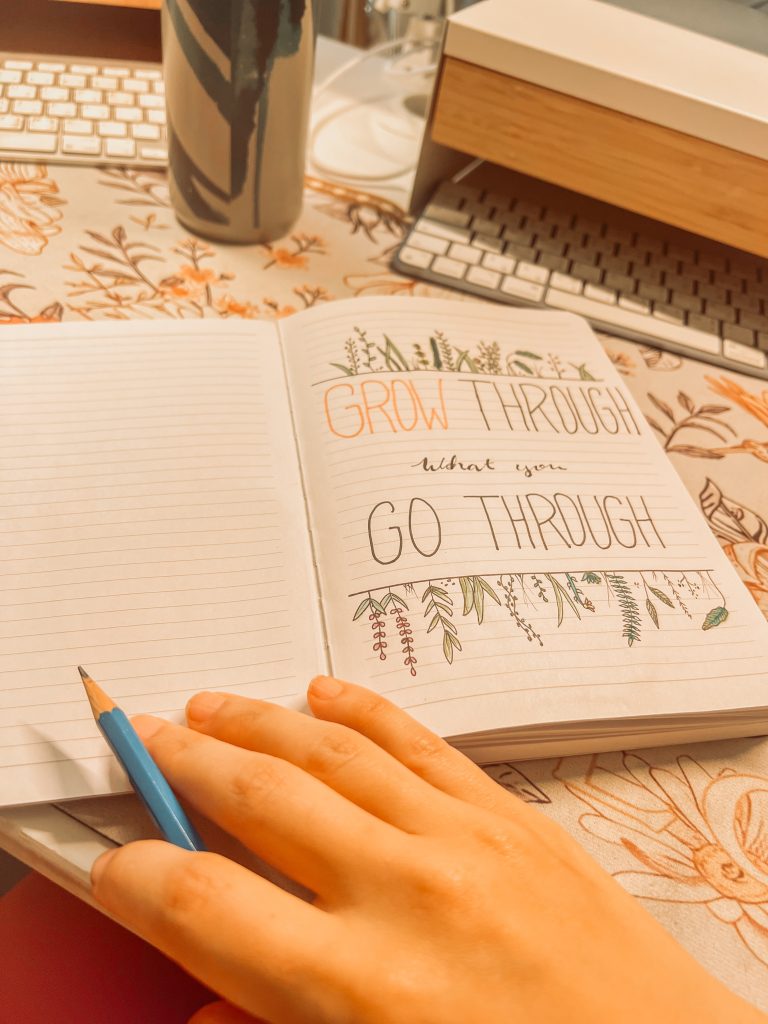 GROW THROUGH
What you
GO THROUGH